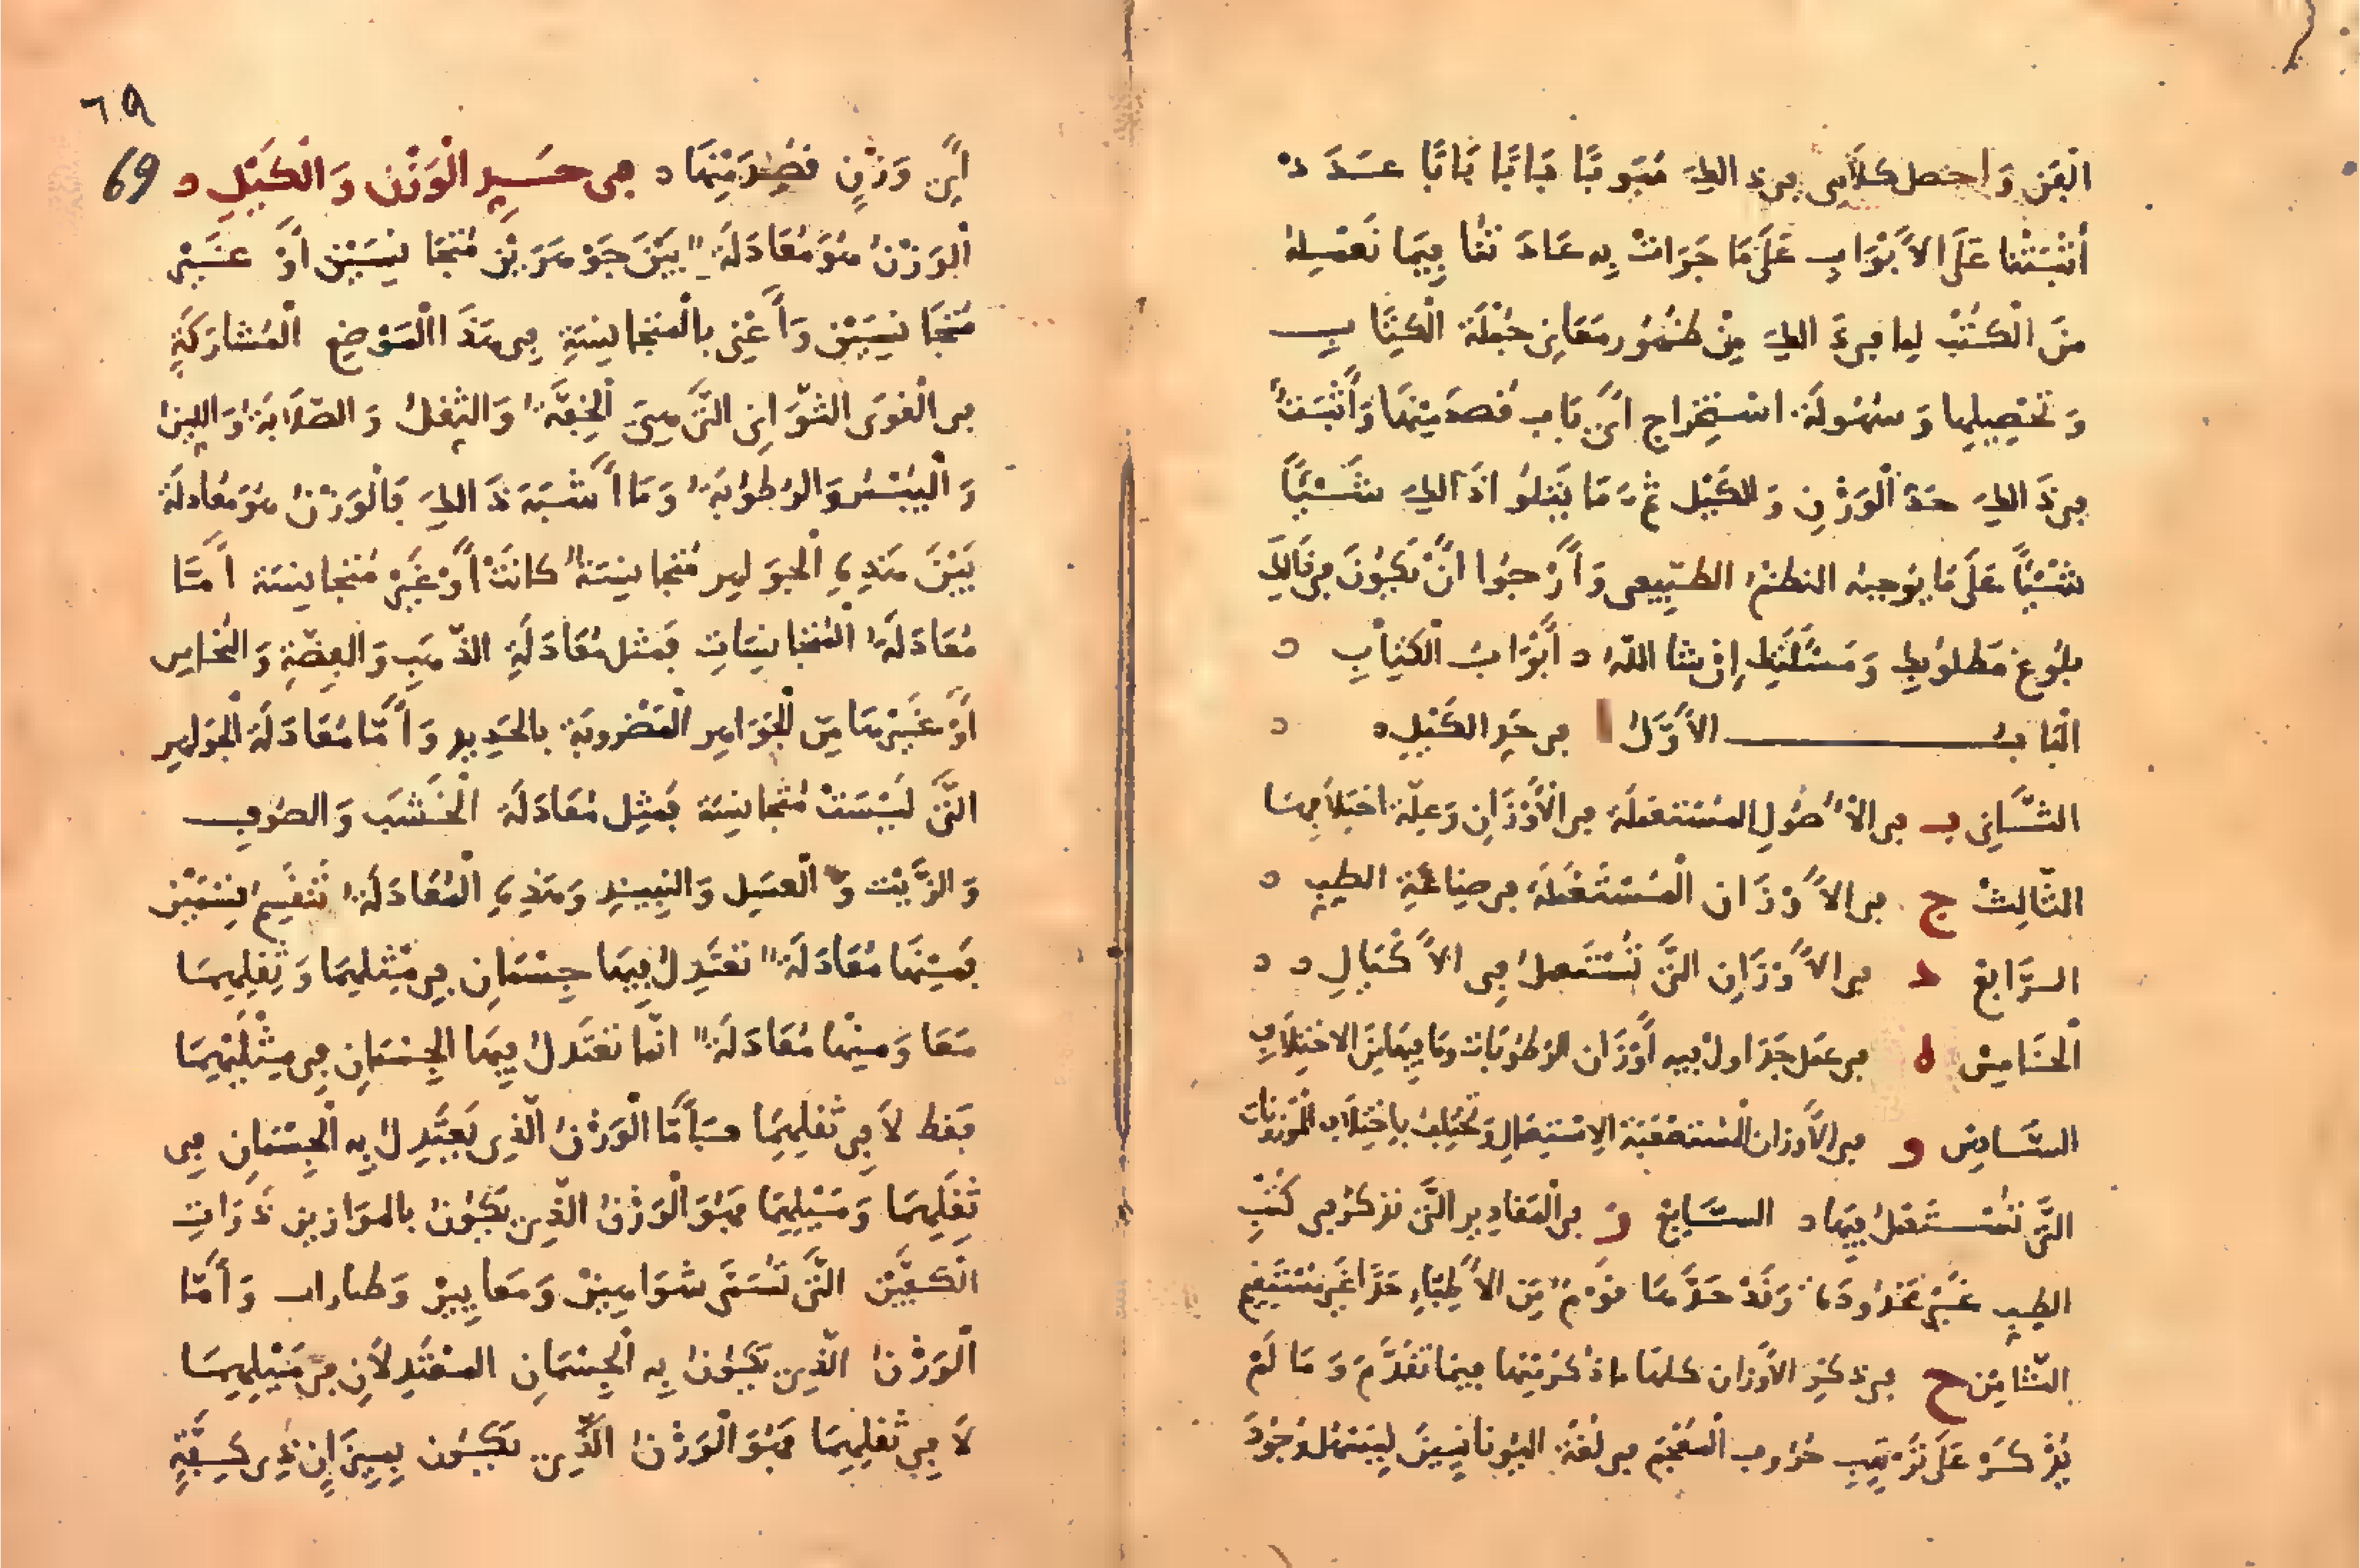 الفن واجعل كلامى فى ذالك مبوبا بابا بابا بابا عددَ
أثبتنا على الأبواب على ما جرات به عادتنا فيما نعمله
من الكتب لما فى ذالك من ظهور معانى جملة الكتاب
وتحصيلها وسهولة استخراج أىّ باب قصد منها وأثبت
فى ذالك حدّ الوزن والكيل ثم ما يتلوا ذالك شيئًا
شيئًا على ما يوجبه النظم الطبيعى وأرجوا أن يكون فى ذالك
بلوغ مطلوبك ومسئلتك إن شا الله أبواب الكتاب
الباب الأوّل ا فى حد الكيل
الثانى ب فى الأصول المستعملة فى الأوزان وعلة اختلافها
الثالث ج فى الأوزان المستعملة فى صناعة الطب
الرابع د فى الأوزان التى تستعمل فى الأكيال
الخامس ه فى عمل جداول فيه أوزان الرطوبات وما فيما بين الاختلاف
السادس و فى الأوزان الاستعمال وتختلف باختلاف الموزونات
التى تستعمل فيها السابع ز فى المقادير التى تذكر فى كتب
الطب غير محدودة وقد حدّها قوم من الأطباء حدا غير مستقيم
الثامن ح فى ذكر الأوزان كلها ما ذكر منها فيما تقدّم وما لم
يذكر على ترتيب حروف المعجم فى لغة اليونانيين ليسهل وجود
٦٩
69
أىّ وزن قصد منها فى حد الوزن والكيل
الوزن هو معادلة بين جوهرين متجانسين أو غير
متجانسين وأعنى بالمتجانسة فى هذا الموضع المشاركة
فى القوى الثوانى التى هى الخفة والثقل والصلابة واللين
واليبس والرطوبة وما أشبه ذالك فالوزن هو معادلة
بين هذه الجواهر متجانسة كانت أو غير متجانسة أما
معادلة المتجانسات فمثل معادلة الذهب والفضة والنحاس
أو غيرها من الجواهر المضروبة بالحديد وأمّا معادلة الجواهر
التى ليست متجانسة فمثل معادلة الخشب والصوف
والزيت والعسل والنبيذ وهذه المعادلة تنقسم قسمين
فمنها معادلة تعتدل فيها جسمان فى مثلها وثقلهما
معا ومنها معادلة انما تعتدل فيها الجسمان فى مثليهما
فقط لا فى ثقلهما فأمّا الوزن الذى يعتدل به الجسمان فى
ثقلهما وميلهما فهو الوزن الذى يكون بالموازين ذوات
الكفتين التى تسمى شواهين ومعايير وأمّا
الوزن الذى يكون به الجسمان المعتدلان فى ميلهما
لا فى ثقلهما فهو الوزن الذى يكون بميزان ذى كفة